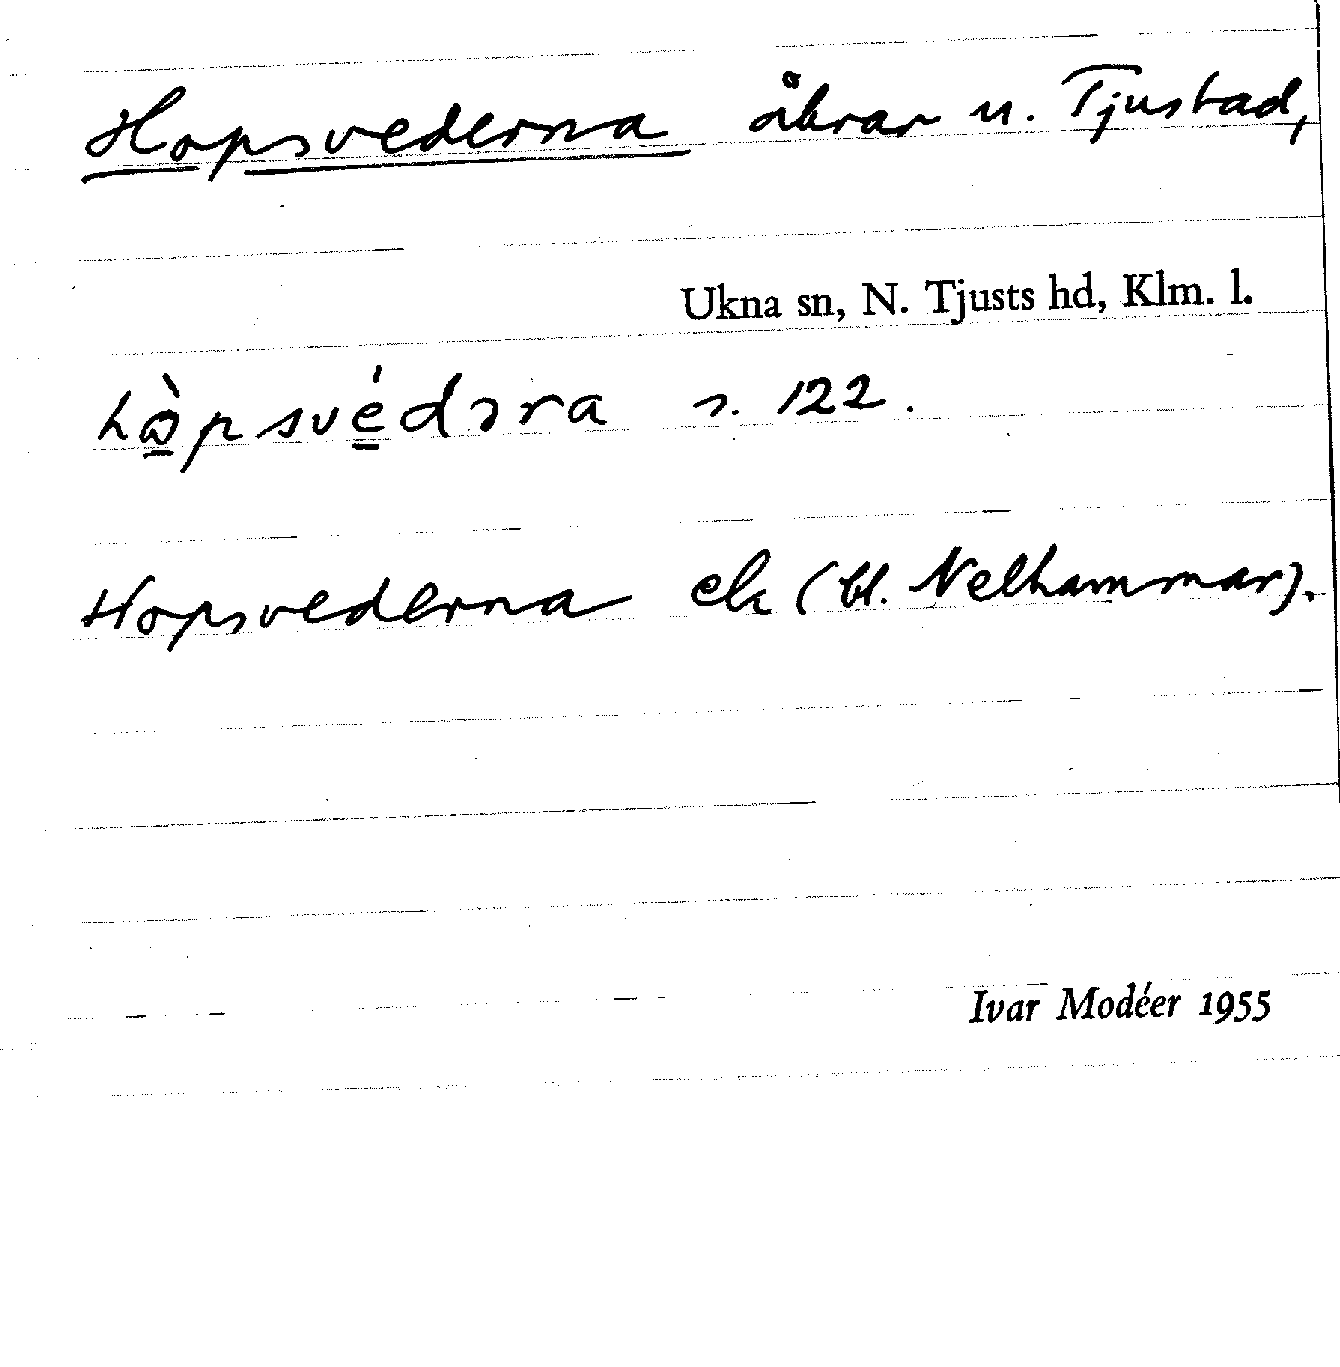 Hopsvederna åkrar u. Tjustad,
Ukna sn, N. Tjusts hd, Klm. l.
hòpsvédəra s. 122.
Hopsvederna ek (bl. Nelhammar).
Ivar Modéer 1955